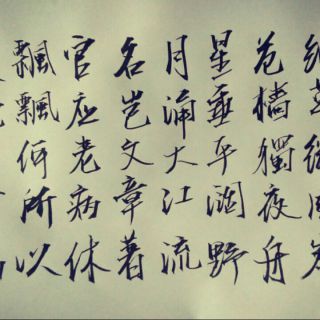 危檣獨夜舟
星垂平濶野
月涌大江流
名岂文章著
官应老病休
飄飄何所以